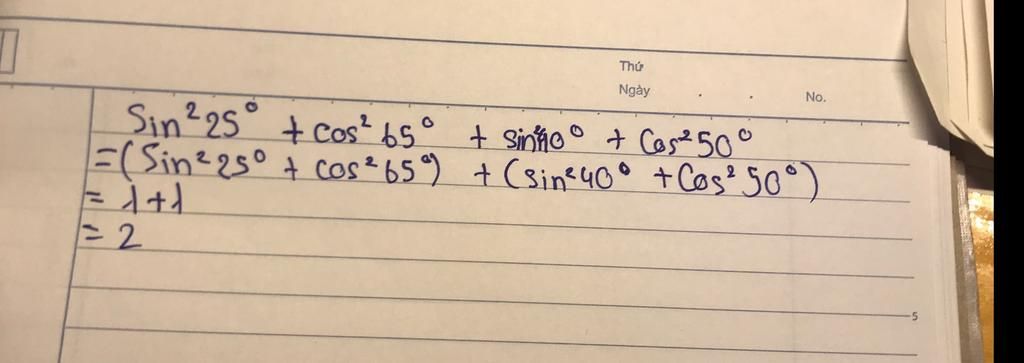 Thứ
Ngày . . No.
Sin²25° + cos²65° + sin²40° + Cos²50°
=(Sin²25° + cos²65°) + (sin²40° + Cos²50°)
= 1+1
= 2
5